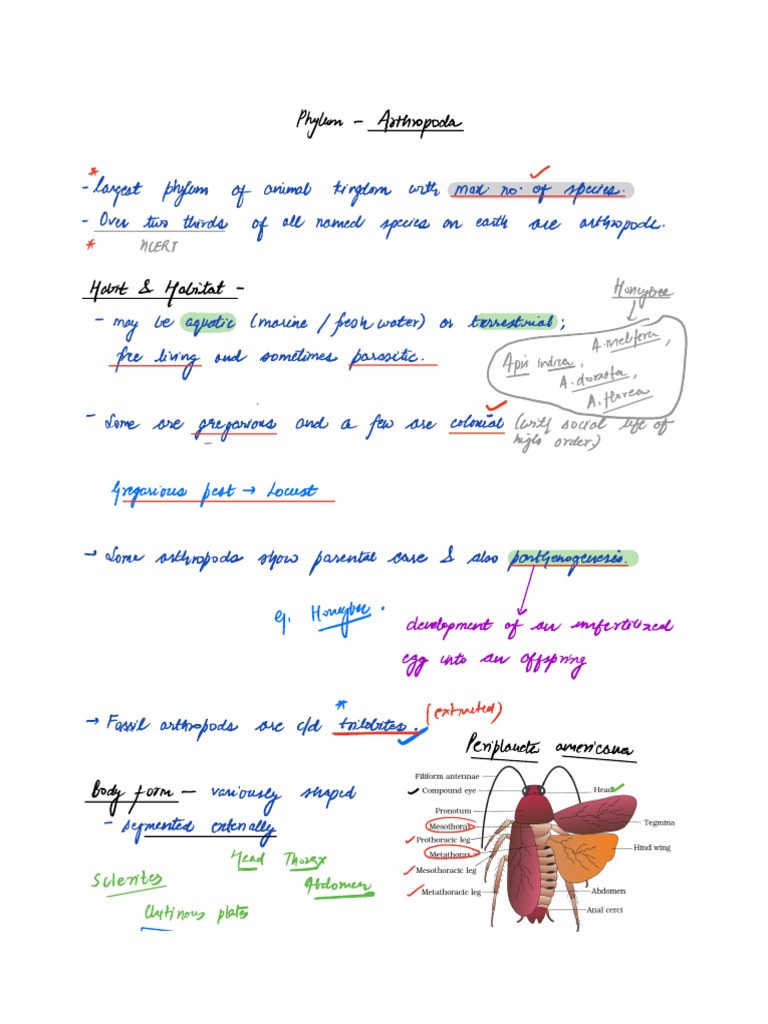 Phylum - Arthropoda
* - largest phylum of animal kingdom with max no. of species.
- Over two thirds of all named species on earth are arthropods.
* NCERT
Habit & Habitat -
- may be aquatic (marine / fresh water) or terrestrial;
free living and sometimes parasitic.
Honeybee
Apis indica, A. melifera,
A. dorsata,
A. florea
- Some are gregarious and a few are colonial (with social life of
high order)
Gregarious pest → Locust
→ Some arthropods show parental care & also parthenogenesis.
eg. Honeybee.
development of an unfertilized
egg into an offspring
→ Fossil arthropods are c/d trilobites. (extincted)
*
Periplaneta americana
Body form - variously shaped
- segmented externally
Head Thorax
Abdomen
Sclerites
Chitinous plates
Filiform antennae
Compound eye
Head
Pronotum
Mesothorax
Tegmina
Prothoracic leg
Metathorax
Hind wing
Mesothoracic leg
Metathoracic leg
Abdomen
Anal cerci